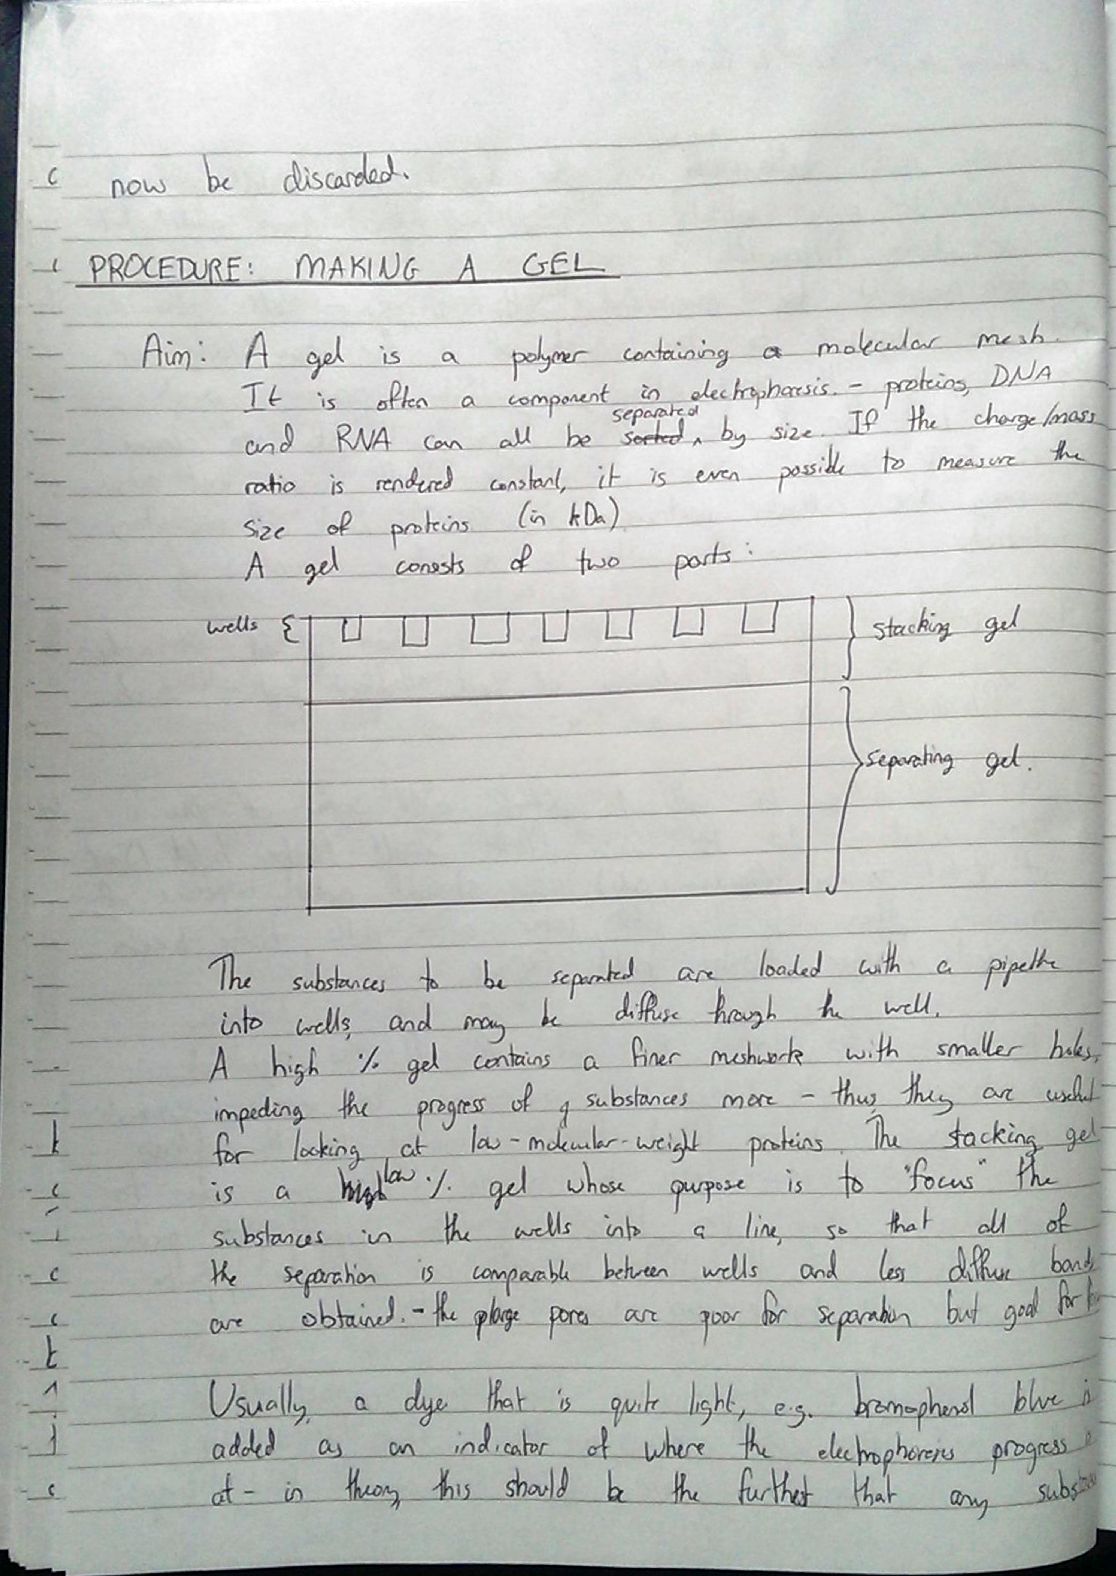 now be discarded.
PROCEDURE: MAKING A GEL
Aim: A gel is a polymer containing a molecular mesh.
It is often a component in electrophoresis. - proteins, DNA
and RNA can all be sorted separated by size. If the charge/mass
ratio is rendered constant, it is even possible to measure the
size of proteins (in kDa)
A gel consists of two parts:
wells
stacking gel
separating gel.
The substances to be separated are loaded with a pipette
into wells, and may be diffuse through the well.
A high % gel contains a finer meshwork with smaller holes,
impeding the progress of substances more - thus, they are useful
for looking at low-molecular-weight proteins. The stacking gel
is a high low % gel whose purpose is to "focus" the
substances in the wells into a line, so that all of
the separation is comparable between wells and less diffuse bands
are obtained. - the large pores are poor for separation but good for
Usually, a dye that is quite light, e.g. bromophenol blue is
added as an indicator of where the electrophoresis progress
at - in theory, this should be the furthest that any